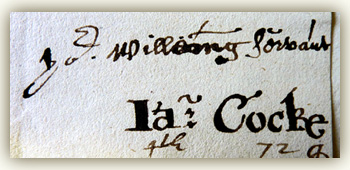 yor. Willeing Servant
Iar. Cocke
4th 72